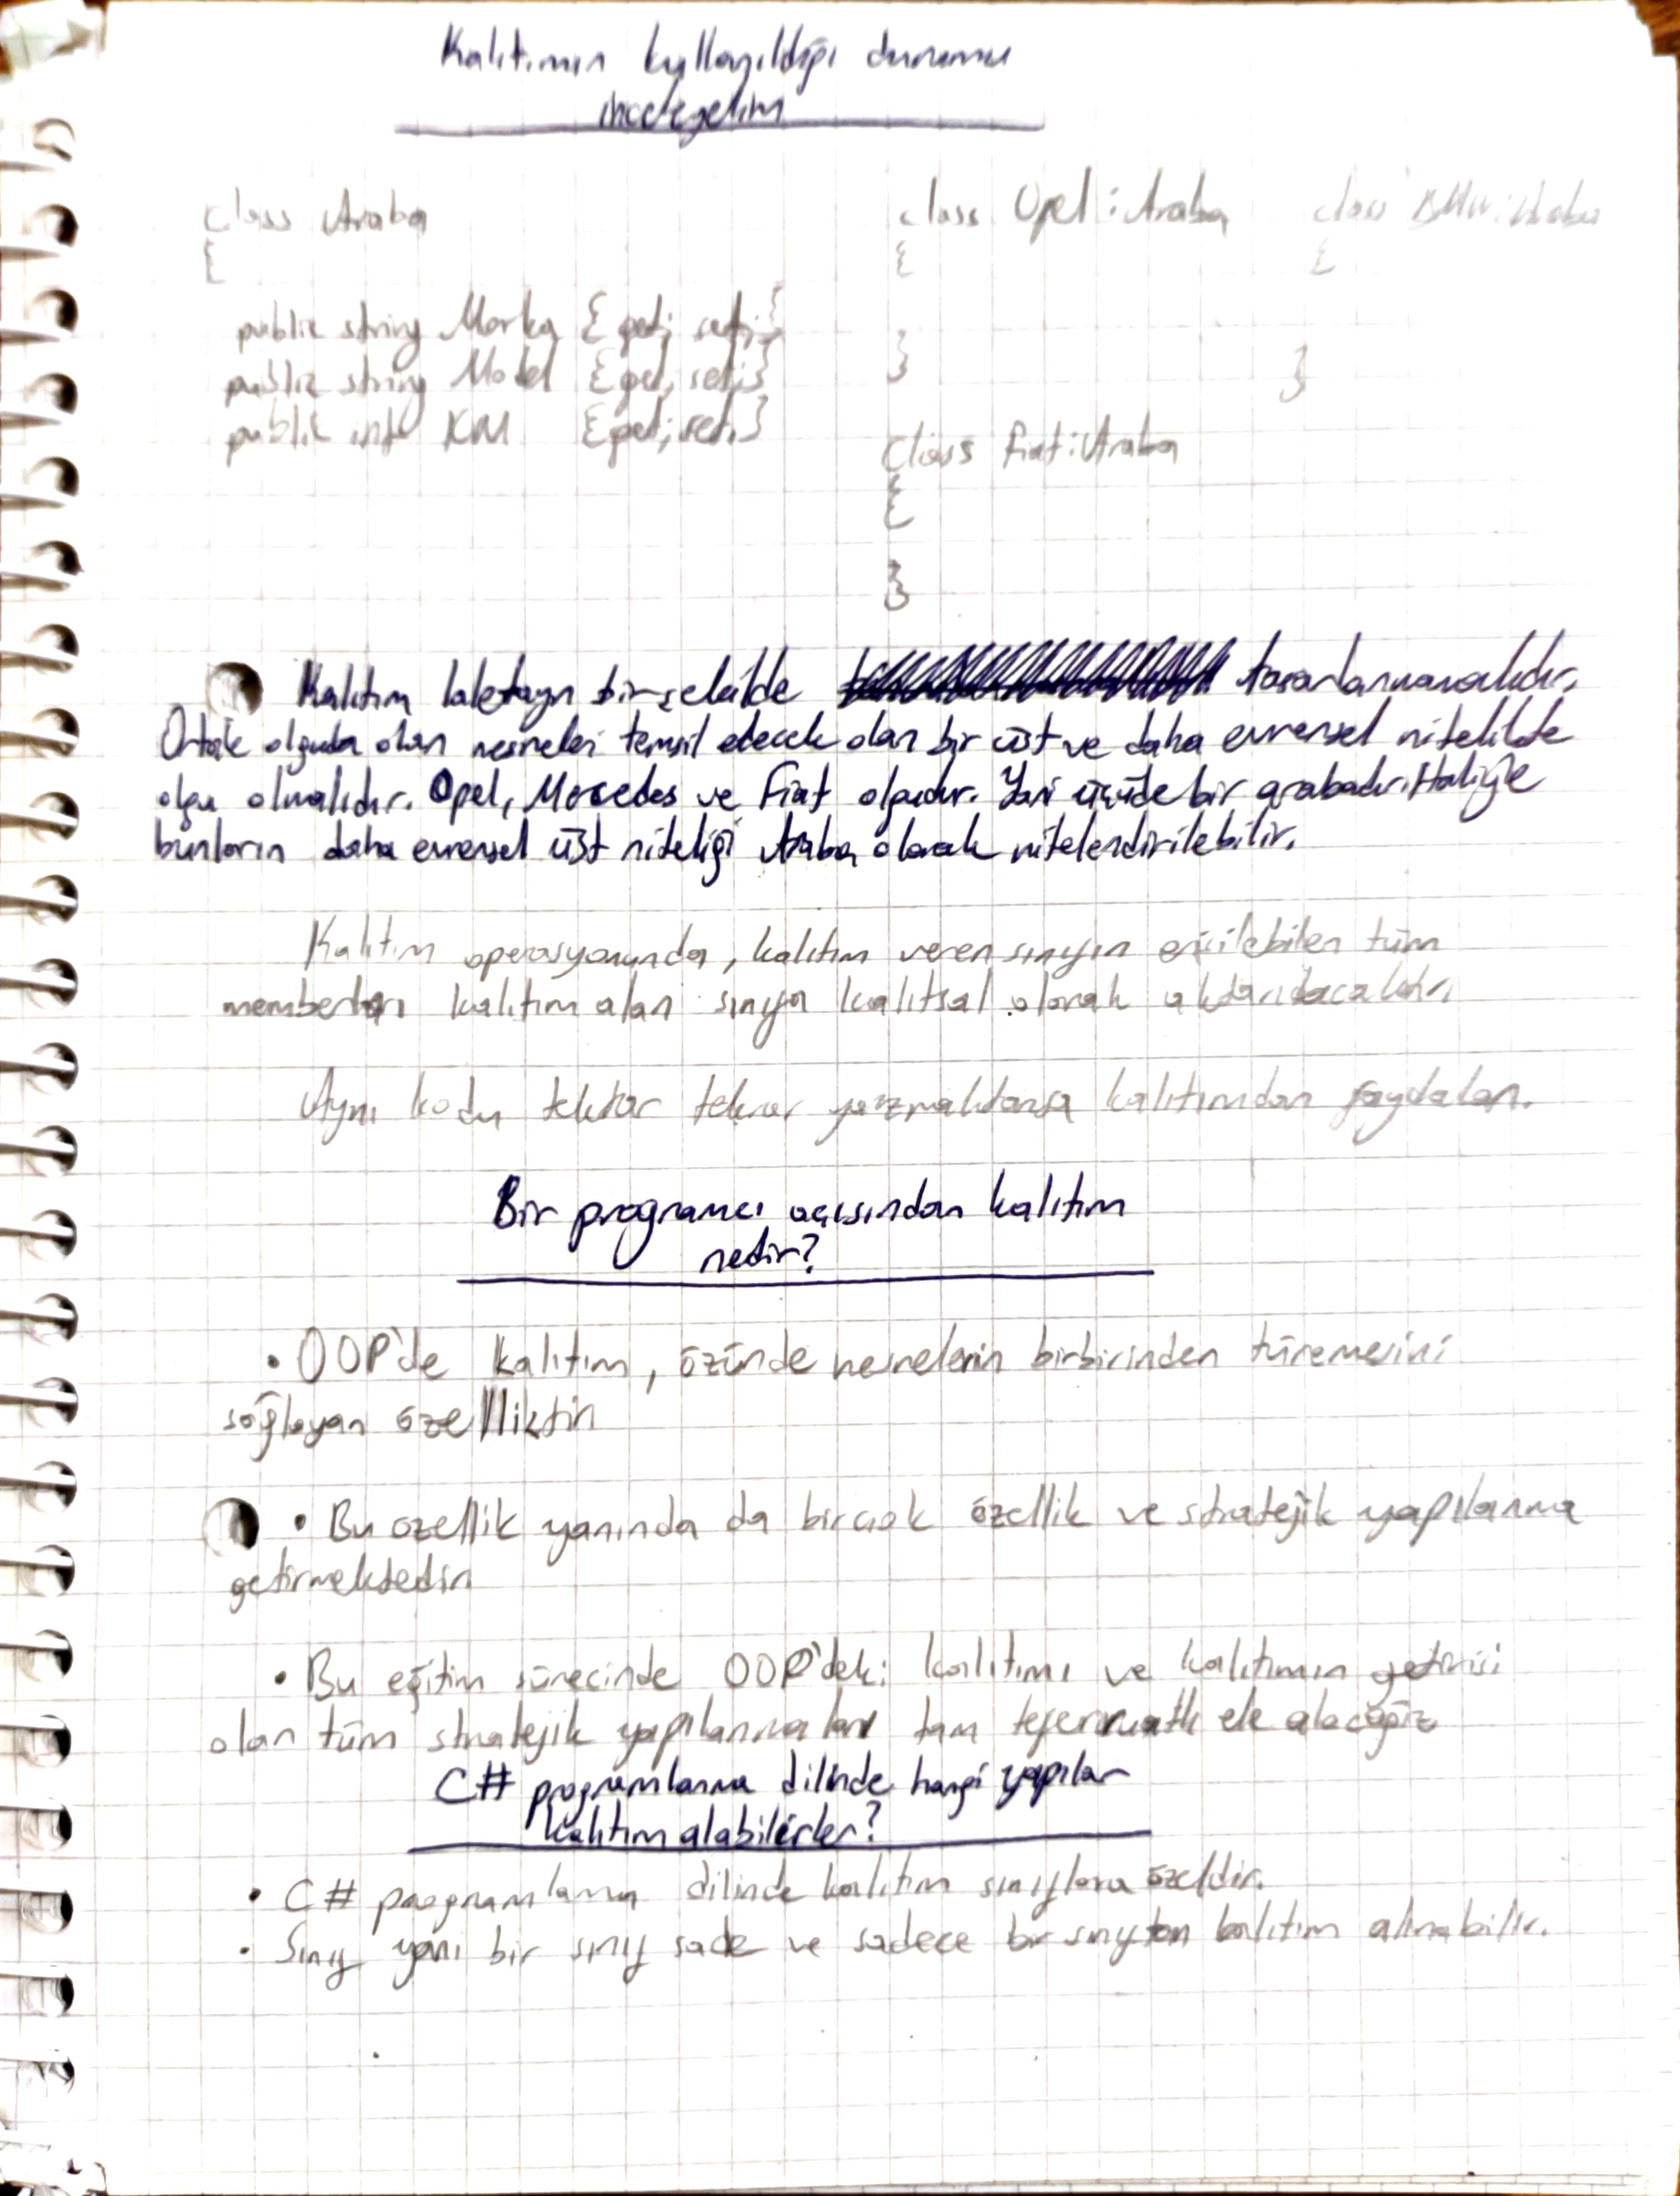 Kalıtımın kullanıldığı durumu
inceleyelim
class Araba
{
public string Marka {get; set;}
public string Model {get; set;}
public int KM {get; set;}
class Opel : Araba
{
}
class BMW : Araba
{
}
class Fiat : Araba
{
}
Kalıtım lalettayn bir şekilde tasarlanmamalıdır.
Ortak olguda olan nesneleri temsil edecek olan bir üst ve daha evrensel nitelikte
olgu olmalıdır. Opel, Mercedes ve Fiat olgudur. Yani üçüde bir arabadır. Haliyle
bunların daha evrensel üst niteliği Araba olarak nitelendirilebilir.
Kalıtım operasyonunda, kalıtım veren sınıfın erişilebilen tüm
memberları kalıtım alan sınıfa kalıtsal olarak aktarılacaktır.
Aynı kodu tekrar tekrar yazmaktansa kalıtımdan faydalan.
Bir programcı açısından kalıtım
nedir?
• OOP'de kalıtım, özünde nesnelerin birbirinden türemesini
sağlayan özelliktir
• Bu özellik yanında da birçok özellik ve stratejik yapılanma
getirmektedir
• Bu eğitim sürecinde OOP'deki kalıtımı ve kalıtımın getirisi
olan tüm stratejik yapılanmaları tam teferruatlı ele alacağız
C# programlama dilinde hangi yapılar
kalıtım alabilirler?
• C# programlama dilinde kalıtım sınıflara özeldir.
• Sınıf yani bir sınıf sade ve sadece bir sınıftan kalıtım alınabilir.